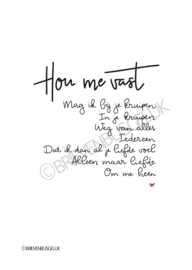 Hou me vast
Mag ik bij je kruipen
In je kruipen
Weg van alles
Iedereen
Dat ik dan al je liefde voel
Alleen maar liefde
Om me heen
©BRIEVENBUSGELUK
©BRIEVENBUSGELUK